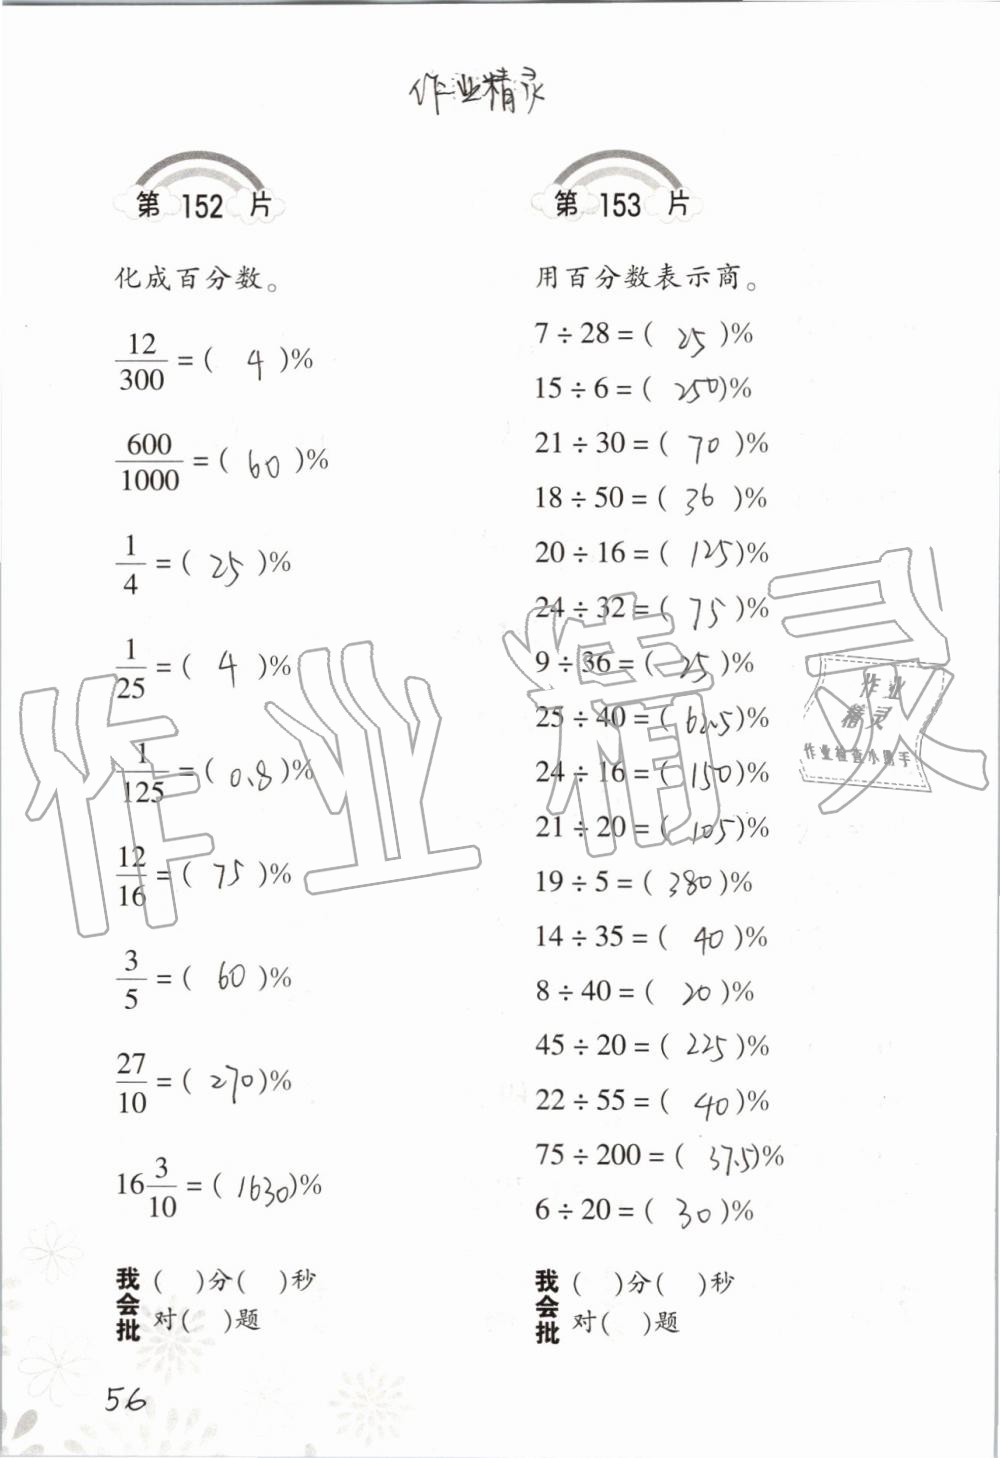 作业精灵
第 152 片
化成百分数。
12/300 = ( 4 )%
600/1000 = ( 60 )%
1/4 = ( 25 )%
1/25 = ( 4 )%
1/125 = ( 0.8 )%
12/16 = ( 75 )%
3/5 = ( 60 )%
27/10 = ( 270 )%
16 3/10 = ( 1630 )%
我会批
( )分( )秒
对( )题
第 153 片
用百分数表示商。
7 ÷ 28 = ( 25 )%
15 ÷ 6 = ( 250 )%
21 ÷ 30 = ( 70 )%
18 ÷ 50 = ( 36 )%
20 ÷ 16 = ( 125 )%
24 ÷ 32 = ( 75 )%
9 ÷ 36 = ( 25 )%
25 ÷ 40 = ( 62.5 )%
24 ÷ 16 = ( 150 )%
21 ÷ 20 = ( 105 )%
19 ÷ 5 = ( 380 )%
14 ÷ 35 = ( 40 )%
8 ÷ 40 = ( 20 )%
45 ÷ 20 = ( 225 )%
22 ÷ 55 = ( 40 )%
75 ÷ 200 = ( 37.5 )%
6 ÷ 20 = ( 30 )%
我会批
( )分( )秒
对( )题
56
作业精灵
作业
精灵
作业检查小助手